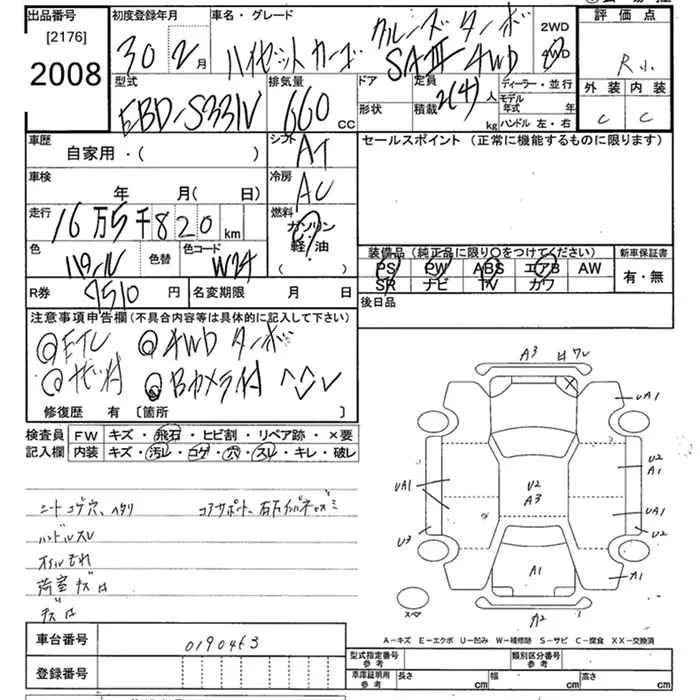 出品番号 初度登録年月 車名・グレード 2WD 評価点
[2176] 30年 2月 ハイゼットカーゴ クルーズターボ SAⅢ 4WD 4WD R小
2008
型式 排気量 ドア 定員 ディーラー・並行 外装 内装
EBD-S331V 660cc 形状 積載 2(4)人 kg モデル年式 年 C C
ハンドル 左・右
車歴 シフト セールスポイント (正常に機能するものに限ります)
自家用・( ) AT
車検 冷房
年 月(日) AC
走行 燃料
16万5千820km ガソリン
軽・油
( )
色 色替 色コード W24
装備品 (純正品に限り〇をつけてください) 新車保証書
PS PW ABS エアB AW 有・無
SR ナビ TV カワ
R券 7510円 名変期限 月 日 後日品
注意事項申告欄 (不具合内容等は具体的に記入して下さい)
◎ETC ◎4WD ターボ
◎Bカメラ付
修復歴 有 [箇所 ]
検査員 FW キズ・飛石・ヒビ割・リペア跡・×要
記入欄 内装 キズ・汚レ・コゲ・穴・スレ・キレ・破レ
シートコゲ穴、ヘタリ コアサポート、
ハンドルスレ
オイルもれ
荷室キズ
A3
UA1
U2
A1
U2
A3
UA1
UA1
U3
U2
A1
A1
A2
スペア
A-キズ E-エクボ U-凹み W-補修跡 S-サビ C-腐食 XX-交換済
車台番号 0190463
型式指定番号 参考 類別区分番号 参考
登録番号
車庫証明用 参考 長さ cm 幅 cm 高さ cm